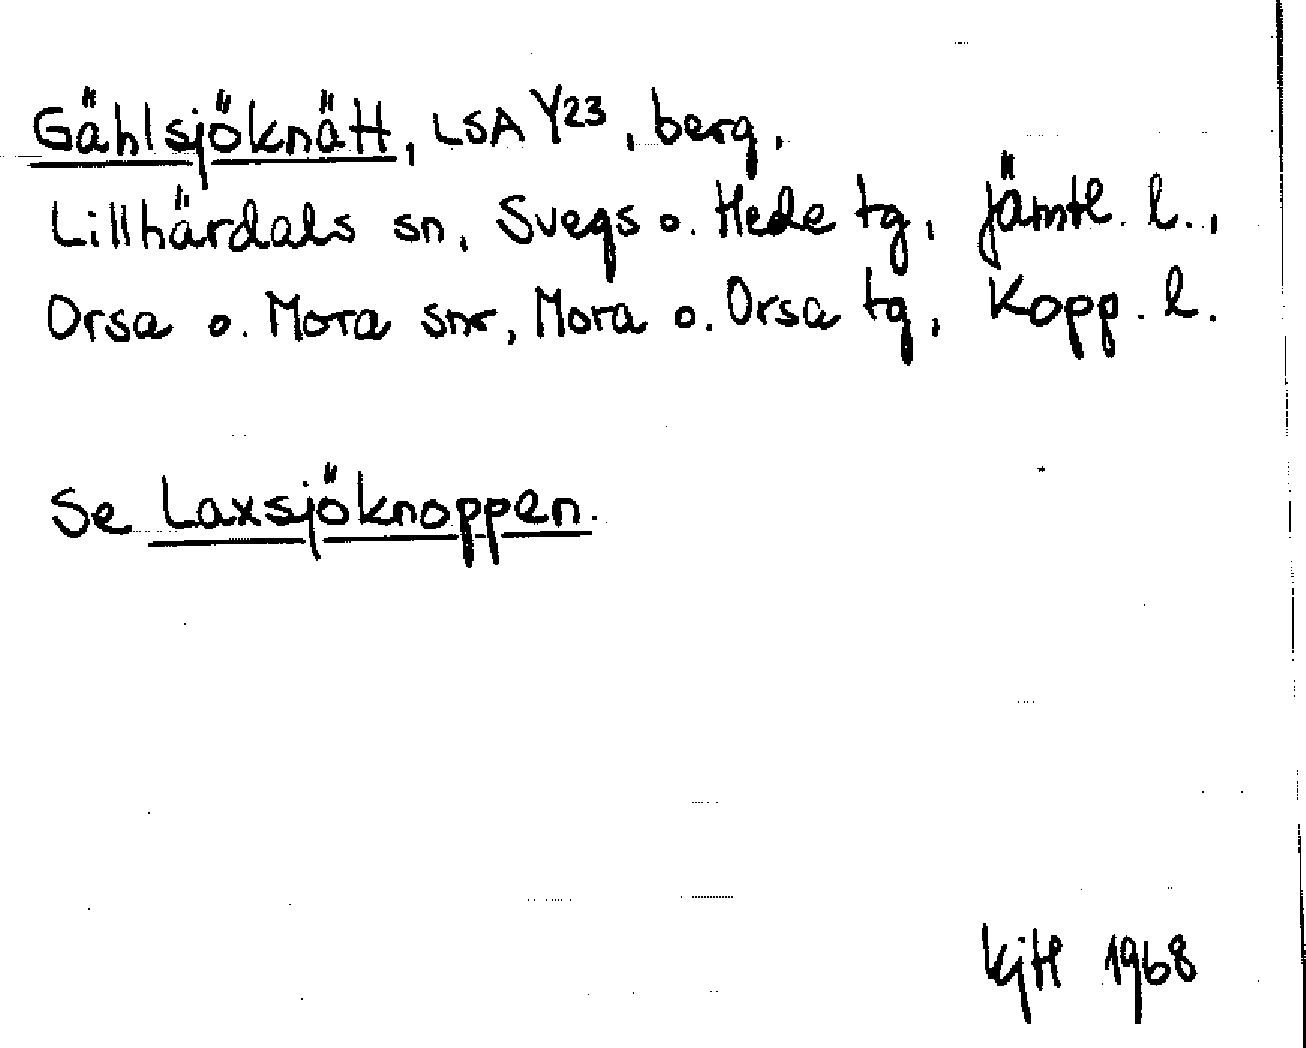 Gählsjöknätt, LSA Y23, berg,
Lillhärdals sn, Svegs o. Hede tg, Jämtl. l.,
Orsa o. Mora snr, Mora o. Orsa tg, Kopp. l.
Se Laxsjöknoppen.
1968